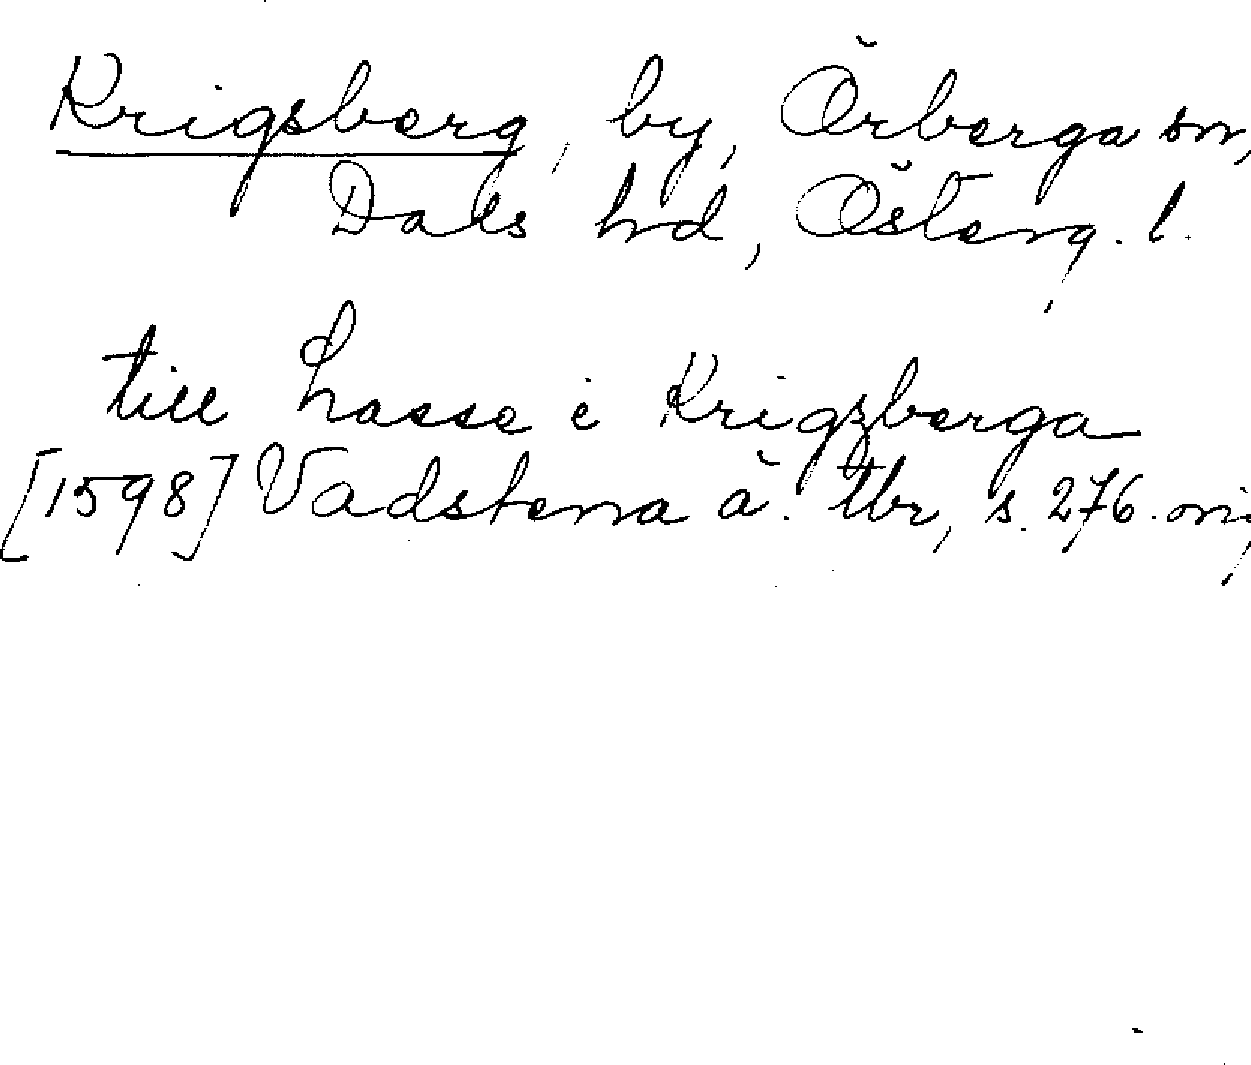 Krigsberg, by, Örberga sn,
Dals hd, Österg. l.
till Lasse i Krigzberga
[1598] Vadstena ä. tbr, s. 276. orig